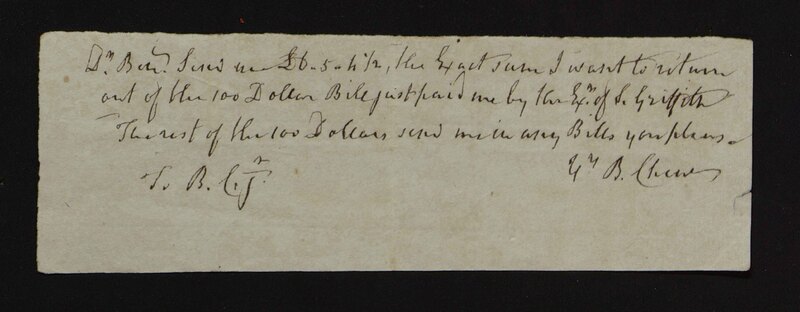 Dr. Ben. Send me £6-5-4 1/2, the Exact sum I want to return
out of the 100 Dollar Bill just paid me by the Exr. of S. Griffith
The rest of the 100 Dollars send me in any Bills you please
Yrs B. Chew
To B. C. Jr.